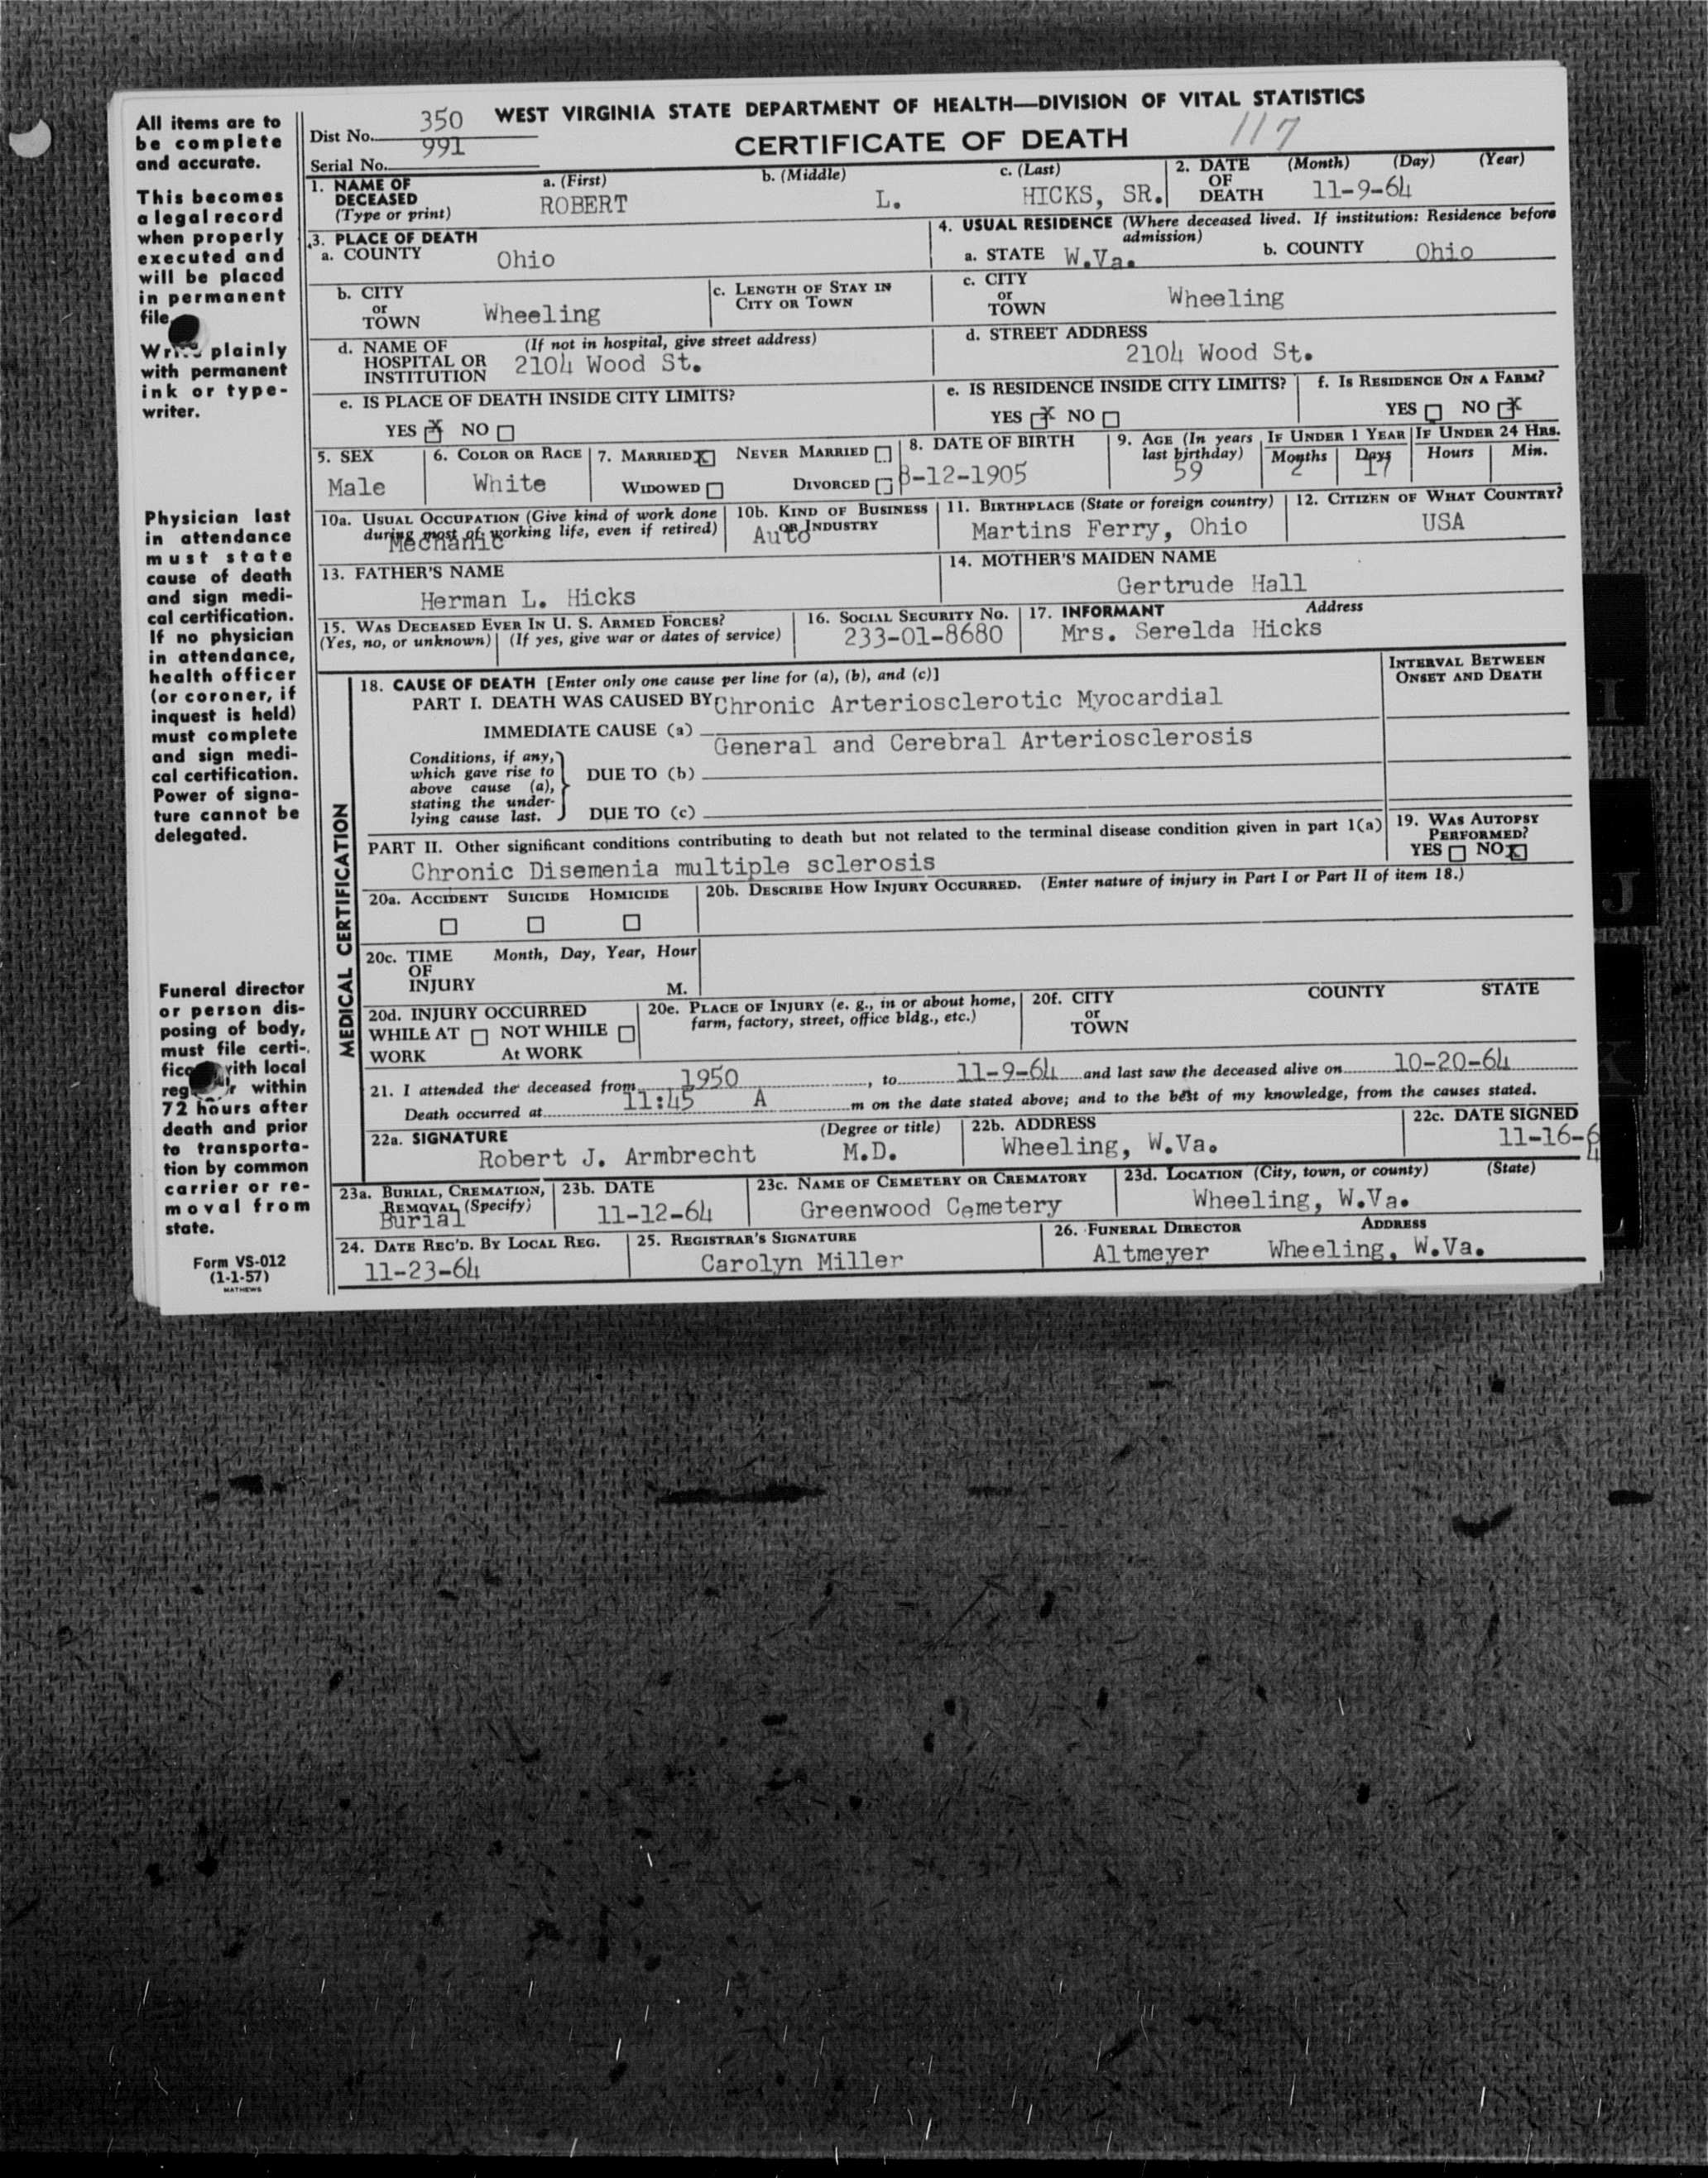 WEST VIRGINIA STATE DEPARTMENT OF HEALTH—DIVISION OF VITAL STATISTICS
CERTIFICATE OF DEATH 117
Dist No. 350
Serial No. 991
All items are to
be complete
and accurate.
This becomes
a legal record
when properly
executed and
will be placed
in permanent
file.
Write plainly
with permanent
ink or type-
writer.
Physician last
in attendance
must state
cause of death
and sign medi-
cal certification.
If no physician
in attendance,
health officer
(or coroner, if
inquest is held)
must complete
and sign medi-
cal certification.
Power of signa-
ture cannot be
delegated.
Funeral director
or person dis-
posing of body,
must file certi-
with local
within
72 hours after
death and prior
to transporta-
tion by common
carrier or re-
moval from
state.
Form VS-012
(1-1-57)
MATHEWS
1. NAME OF DECEASED (Type or print) a. (First) ROBERT b. (Middle) L. c. (Last) HICKS, SR.
2. DATE OF DEATH (Month) (Day) (Year) 11-9-64
3. PLACE OF DEATH
a. COUNTY Ohio
4. USUAL RESIDENCE (Where deceased lived. If institution: Residence before admission)
a. STATE W.Va. b. COUNTY Ohio
b. CITY or TOWN Wheeling
c. LENGTH OF STAY IN CITY OR TOWN
c. CITY or TOWN Wheeling
d. NAME OF HOSPITAL OR INSTITUTION (If not in hospital, give street address) 2104 Wood St.
d. STREET ADDRESS 2104 Wood St.
e. IS PLACE OF DEATH INSIDE CITY LIMITS? YES X NO
e. IS RESIDENCE INSIDE CITY LIMITS? YES X NO
f. IS RESIDENCE ON A FARM? YES NO X
5. SEX Male
6. COLOR OR RACE White
7. MARRIED X NEVER MARRIED WIDOWED DIVORCED
8. DATE OF BIRTH 8-12-1905
9. AGE (In years last birthday) 59
IF UNDER 1 YEAR Months 2 Days 17
IF UNDER 24 HRS. Hours Min.
10a. USUAL OCCUPATION (Give kind of work done during most of working life, even if retired) Mechanic
10b. KIND OF BUSINESS OR INDUSTRY Auto
11. BIRTHPLACE (State or foreign country) Martins Ferry, Ohio
12. CITIZEN OF WHAT COUNTRY? USA
13. FATHER'S NAME Herman L. Hicks
14. MOTHER'S MAIDEN NAME Gertrude Hall
15. WAS DECEASED EVER IN U. S. ARMED FORCES? (Yes, no, or unknown) (If yes, give war or dates of service)
16. SOCIAL SECURITY NO. 233-01-8680
17. INFORMANT Address Mrs. Serelda Hicks
MEDICAL CERTIFICATION
18. CAUSE OF DEATH [Enter only one cause per line for (a), (b), and (c)]
INTERVAL BETWEEN ONSET AND DEATH
PART I. DEATH WAS CAUSED BY Chronic Arteriosclerotic Myocardial
IMMEDIATE CAUSE (a)
General and Cerebral Arteriosclerosis
Conditions, if any, which gave rise to above cause (a), stating the under-lying cause last.
DUE TO (b)
DUE TO (c)
PART II. Other significant conditions contributing to death but not related to the terminal disease condition given in part 1(a)
Chronic Disemenia multiple sclerosis
19. WAS AUTOPSY PERFORMED? YES NO X
20a. ACCIDENT SUICIDE HOMICIDE
20b. DESCRIBE HOW INJURY OCCURRED. (Enter nature of injury in Part I or Part II of item 18.)
20c. TIME OF INJURY Month, Day, Year, Hour M.
20d. INJURY OCCURRED WHILE AT WORK NOT WHILE At WORK
20e. PLACE OF INJURY (e. g., in or about home, farm, factory, street, office bldg., etc.)
20f. CITY or TOWN COUNTY STATE
21. I attended the deceased from 1950, to 11-9-64 and last saw the deceased alive on 10-20-64
Death occurred at 11:45 A m on the date stated above; and to the best of my knowledge, from the causes stated.
22a. SIGNATURE Robert J. Armbrecht (Degree or title) M.D.
22b. ADDRESS Wheeling, W.Va.
22c. DATE SIGNED 11-16-64
23a. BURIAL, CREMATION, REMOVAL (Specify) Burial
23b. DATE 11-12-64
23c. NAME OF CEMETERY OR CREMATORY Greenwood Cemetery
23d. LOCATION (City, town, or county) (State) Wheeling, W.Va.
24. DATE REC'D. BY LOCAL REG. 11-23-64
25. REGISTRAR'S SIGNATURE Carolyn Miller
26. FUNERAL DIRECTOR ADDRESS Altmeyer Wheeling, W.Va.
I
J
K
L